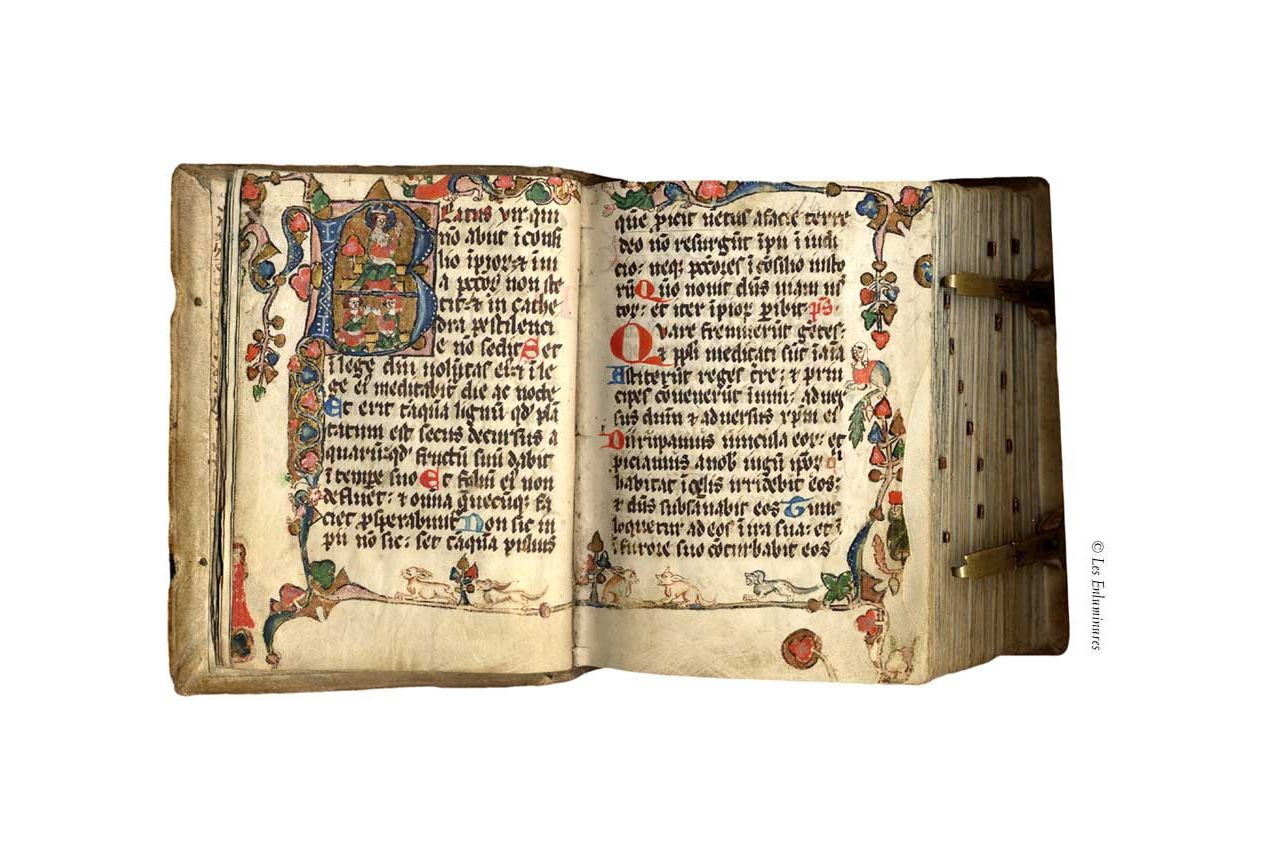 Beatus vir qui
nō abiit ī consi
lio īpioꝝ ⁊ in ui
a pctoꝝ non ste
tit: ⁊ in cathe
dra pestilenci
e nō sedit Set
ī lege dn̄i uolūtas ei᷒ ⁊ ī le
ge ei᷒ meditabit᷑ die ac nocte
Et erit tāqua lignū qd̓ plā
tatum est secus decursus a
quarū: qd̓ fructū suū dabit
ī tempe suo Et foliū ei᷒ non
defluet: ⁊ om̄ia quecūq: fa
ciet ꝓsperabunt᷑ Non sic im
pii nō sic: set tāqua puluis
quē ꝓicit uētus a facie terre
Ideo nō resurgūt īpii ī iudi
cio: neq: pctōres ī cōsilio iusto
rū Quō nouit dn̄s uiam ius
toꝝ: et iter īpioꝝ ꝑibit ps̄.
Quare fremuerūt gētes:
⁊ ppl̄i meditati sūt īania
Astiterūt reges tr̄e: ⁊ prin
cipes cōuenerūt ī unū: aduer
sus dn̄m ⁊ aduersus xp̄m ei᷒
Dirūpamus uincula eoꝝ: et
ꝓiciamus a nob̄ iugū ip̄oꝝ Q
habitat ī cel̄is irridebit eos:
⁊ dn̄s subsanabit eos Tunc
loquetur ad eos ī ira sua: et ī
ī furore suo cōturbabit eos
© Les Enluminures